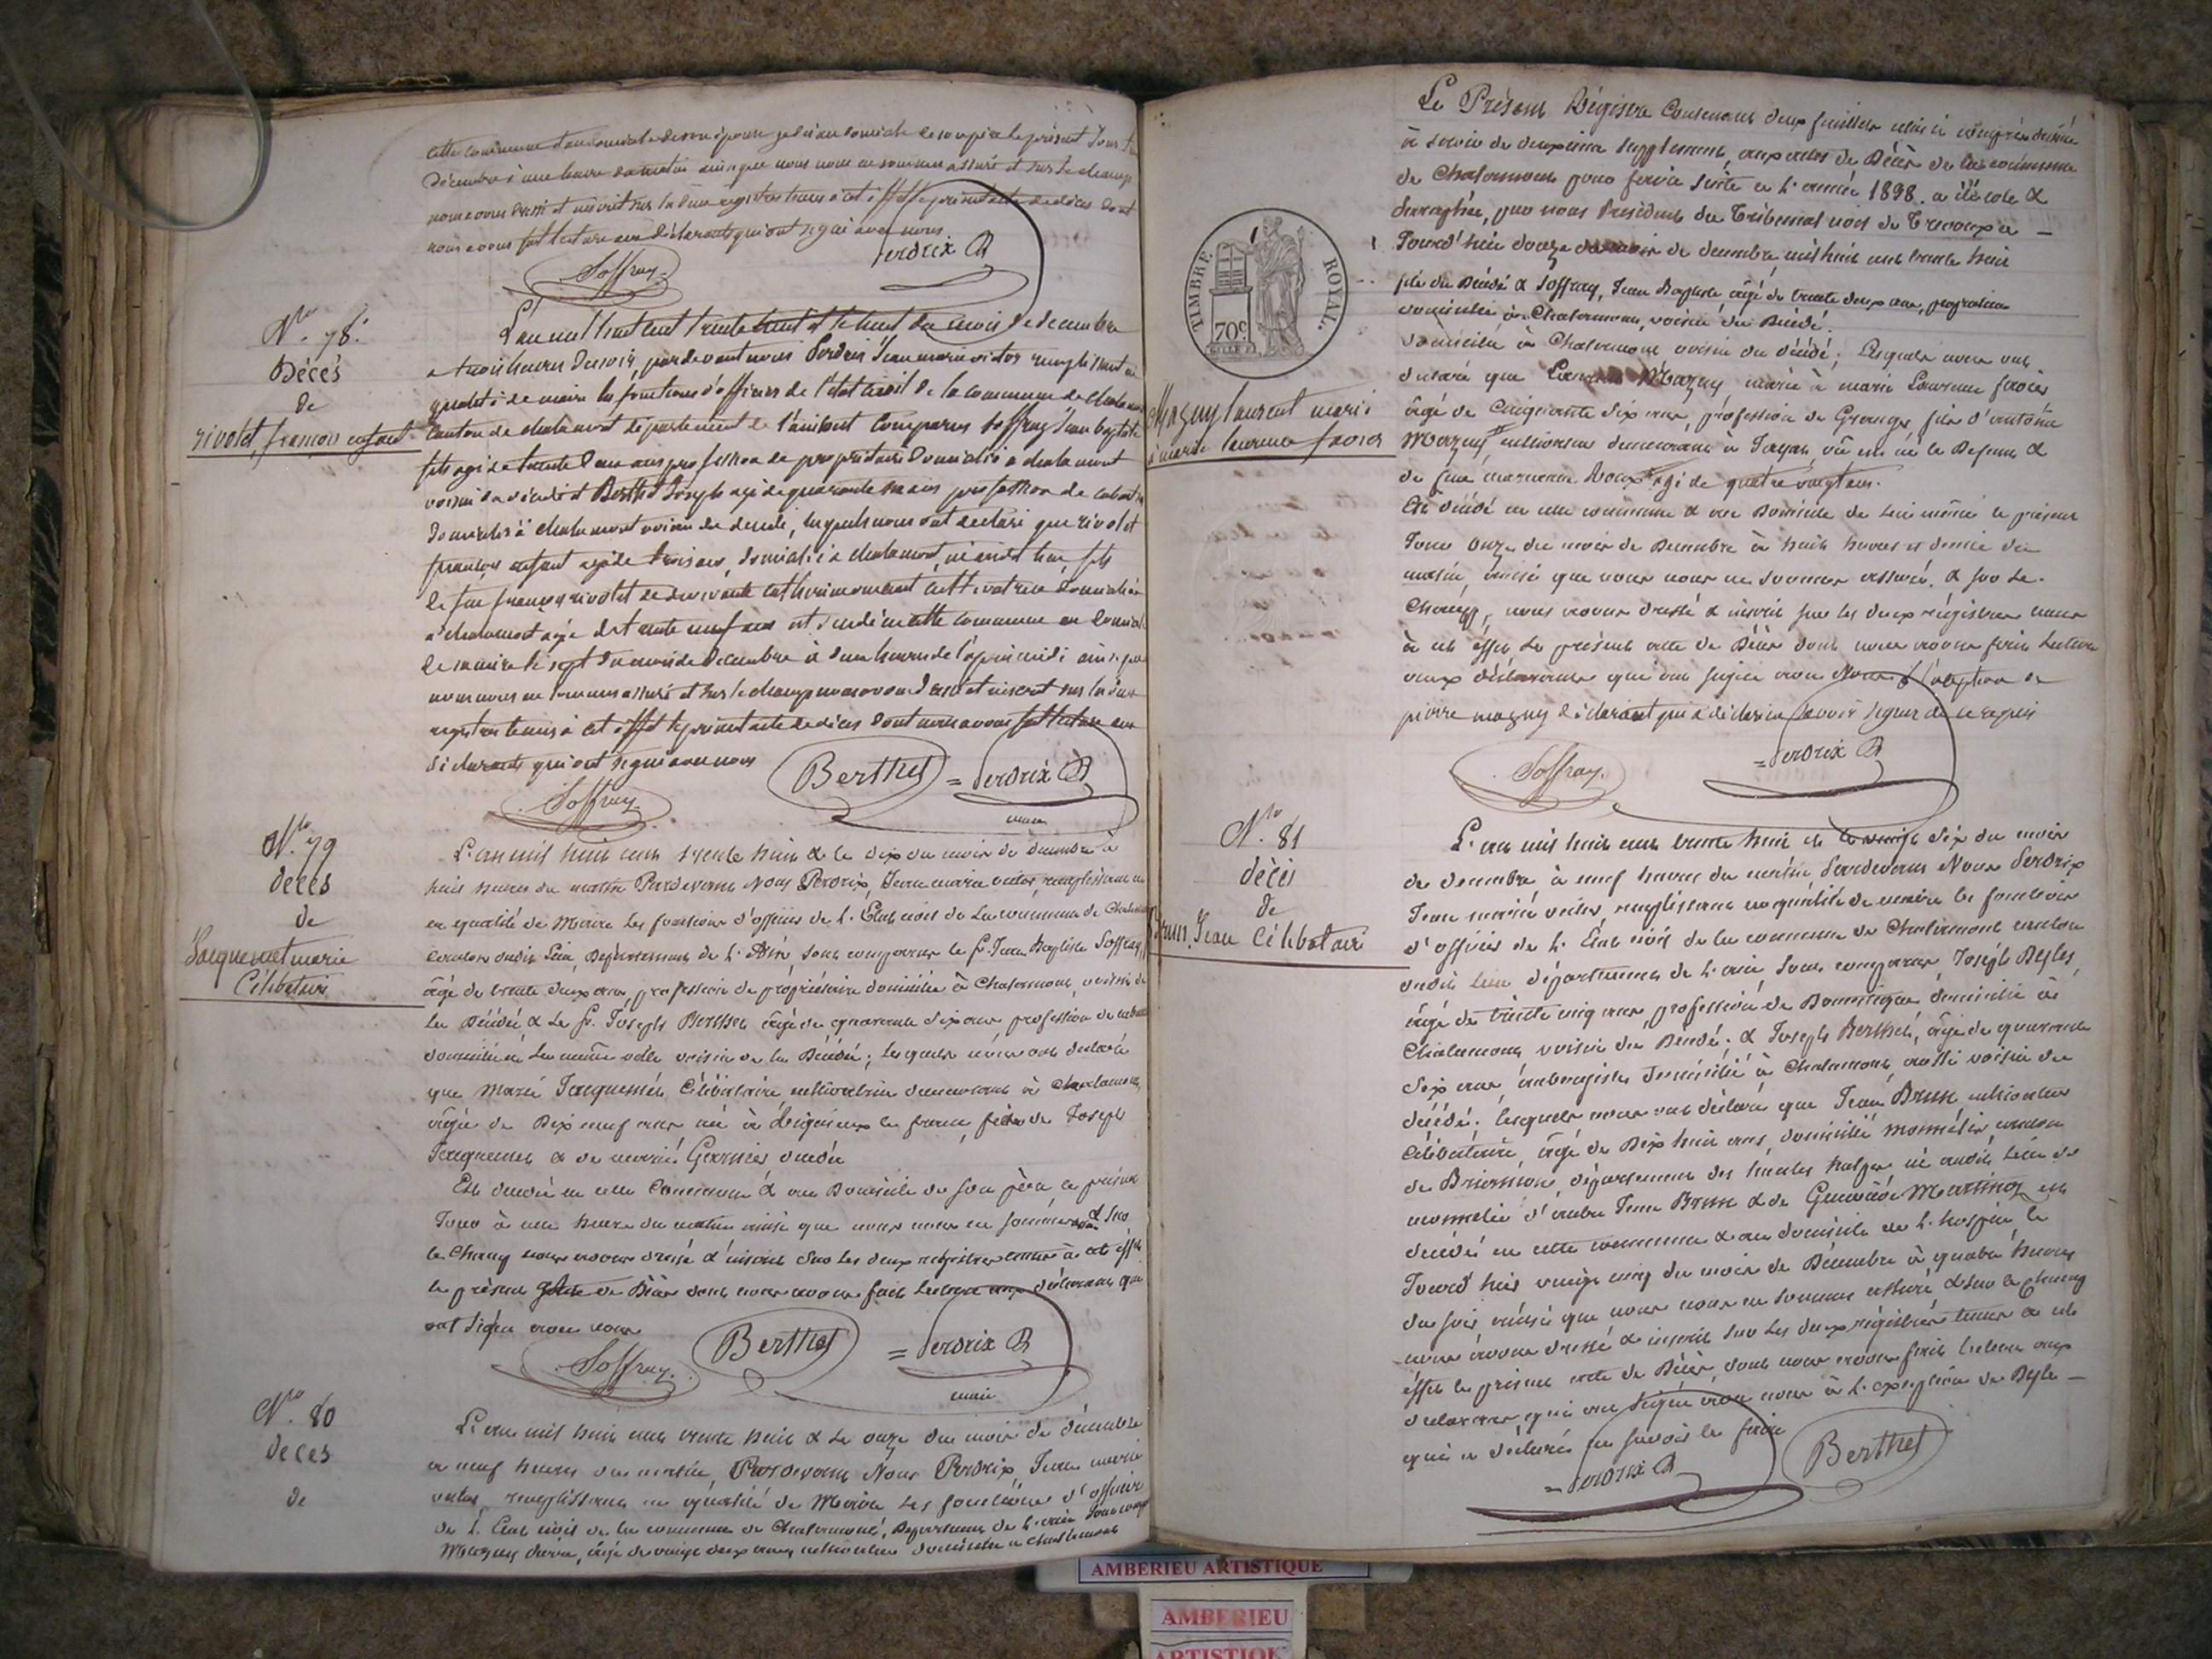 cette commune
décembre à une heure du matin ainsi que nous nous en sommes assuré et sur le champ
nous avons dressé et inscrit sur les deux registres tenus à cet effet le présent acte de décès dont
nous avons fait lecture aux déclarants qui ont signé avec nous
Soffray
Perdrix
N.° 78.
Décès
de
rivolet françois enfant
L'an mil huit cent trente huit et le huit du mois de decembre
a trois heures du soir, par devant nous Perdrix Jean marie victor remplissant en
qualité de maire les fonctions d'officier de l'état civil de la commune de chalamont
canton de chalamont département de l'ain sont comparus Soffray Jean baptiste
agé de trente deux ans profession de propriétaire domicilié a chalamont
voisin du décédé et Berthet Joseph agé de quarante six ans profession de
domicilié à chalamont voisin du décédé, lesquels nous ont declaré que rivolet
françois enfant agé de trois ans, domicilié à chalamont, fils
de feu françois rivolet et de vivante catherine cultivatrice domiciliée
à chalamont agée de trente neuf ans est décédé en cette commune au domicile
de sa mère le sept du mois de decembre à deux heures de l'après midi ainsi que
nous nous en sommes assuré et sur le champ nous avons dressé et inscrit sur les deux
registres tenus à cet effet le présent acte de décès dont nous avons fait lecture aux
déclarants qui ont signé avec nous
Soffray
Berthet
= Perdrix
maire
N.° 79
décès
de
Jacquemet marie
Célibataire
L'an mil huit cent trente huit & le dix du mois de décembre à
huit heures du matin Pardevant Nous Perdrix, Jean marie victor, remplissant
en qualité de Maire les fonctions d'officier de l'Etat civil de la commune de
Canton dudit Lieu, Département de l'Ain, sont comparus le Sr. Jean Baptiste Soffray,
âgé de trente deux ans, profession de propriétaire domicilié à Chalamont, voisin de
la Décédée & Le Sr. Joseph Berthet âgé de quarante six ans profession de
domicilié en la même ville voisin de la Décédée; lesquels nous ont déclaré
que Marie Jacquemet, Célibataire, cultivatrice demeurant à Chalamont,
âgée de Dix neuf ans née à fille de Joseph
Jacquemet & de marie
Est décédée en cette Commune & au Domicile de son père le présent
Jour à une heure du matin ainsi que nous nous en sommes & sur
le Champ nous avons dressé & inscrit sur les deux registres tenus à cet effet
le présent acte de Décès dont nous avons fait lecture aux déclarants qui
ont signé avec nous
Soffray
Berthet
= Perdrix
maire
N.° 80
décès
de
L'an mil huit cent trente huit & le onze du mois de décembre
à neuf heures du matin, Pardevant Nous Perdrix, Jean marie
victor, remplissant en qualité de Maire les fonctions d'officier
de l'Etat civil de la commune de Chalamont, Département de l'ain
Mazuy Pierre, âgé de vingt deux ans, cultivateur domicilié à Chalamont
Le Présent Régistre Contenant deux feuilles celui ci compris destiné
à servir de deuxième supplement, aux actes de Décès de la commune
de Chalamont pour servir suite en l'année 1898. a été coté &
paraphé, par nous Président du Tribunal civil de Trevoux a
Jourd'hui douze du mois de decembre mil huit cent trente huit
TIMBRE ROYAL.
70c
& Soffray, Jean Baptiste âgé de trente deux ans, propriétaire
domicilié à Chalamont, voisin du Décédé.
domicilié à Chalamont voisin du décédé; Lesquels nous ont
déclaré que Laurent Mazuy marié à marie Laurence
âgé de Cinquante six ans, profession de Granger fils d'antoine
Mazuy, cultivateur demeurant à
de feue agé de quatre vingt ans.
Est décédé en cette commune & au Domicile de lui même le présent
Jour onze du mois de Décembre à huit heures et demie du
matin, ainsi que nous nous en sommes assuré. & sur le
Champ, nous avons dressé & inscrit sur les deux régistres tenus
à cet effet le présent acte de Décès dont nous avons fait lecture
aux déclarants qui ont signé avec Nous à l'exception de
pierre mazuy déclarant qui a déclaré ne savoir signer de ce requis
Soffray.
= Perdrix
Mazuy laurent marié
à marie laurence
N.° 81
décès
de
Brun, Jean Célibataire
L'an mil huit cent trente huit et le vingt six du mois
de decembre à neuf heures du matin Pardevant Nous Perdrix
Jean marie victor, remplissant en qualité de maire les fonctions
d'officier de l'Etat civil de la commune de Chalamont canton
dudit lieu département de l'ain, sont comparus, Joseph
âgé de trente cinq ans, profession de Domestique domicilié à
Chalamont voisin du Décédé; & Joseph Berthet, âgé de quarante
six ans aubergiste domicilié à Chalamont, aussi voisin du
décédé; lesquels nous ont déclaré que Jean Brun cultivateur
Célibataire, âgé de Dix huit ans, domicilié canton
de Briançon, département des hautes halpes, né audit lieu de
d'autre Jean Brun & de Martinon est
décédé en cette commune & au domicile de l'hospice le
Jourd'hui vingt cinq du mois de Décembre à quatre heures
du soir ainsi que nous nous en sommes assuré & sur le champ
nous avons dressé & inscrit sur les deux régistres tenus à cet
effet le présent acte de Décès, dont nous avons fait lecture aux
déclarants qui ont signé avec nous à l'exception de
qui a déclaré ne savoir le faire
= Perdrix
Berthet
AMBERIEU ARTISTIQUE
AMBERIEU
ARTISTIQUE